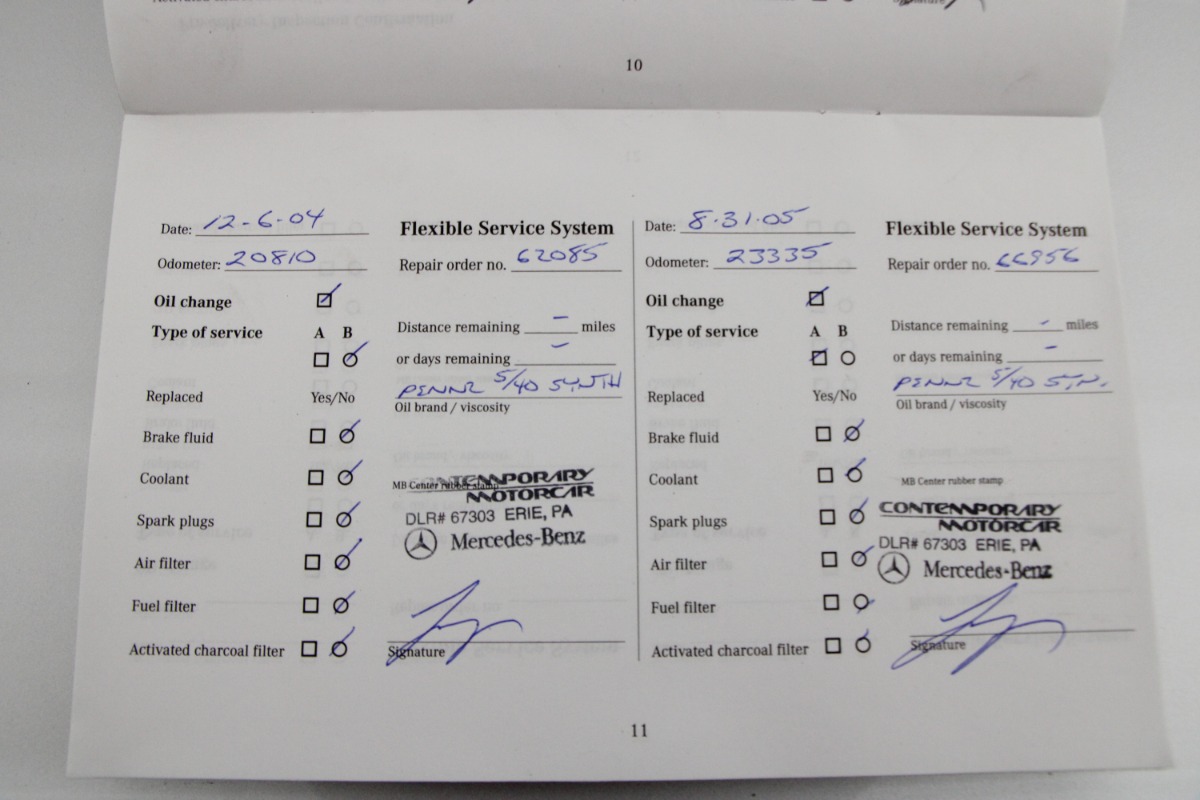 10
Date: 12-6-04
Odometer: 20810
Oil change
Type of service A B
Replaced Yes/No
Brake fluid
Coolant
Spark plugs
Air filter
Fuel filter
Activated charcoal filter
Flexible Service System
Repair order no. 62085
Distance remaining - miles
or days remaining -
PENNZ 5/40 SYNTH
Oil brand / viscosity
MB Center rubber stamp
CONTEMPORARY
MOTORCAR
DLR# 67303 ERIE, PA
Mercedes-Benz
Signature
Date: 8·31·05
Odometer: 23335
Oil change
Type of service A B
Replaced Yes/No
Brake fluid
Coolant
Spark plugs
Air filter
Fuel filter
Activated charcoal filter
Flexible Service System
Repair order no. 66956
Distance remaining - miles
or days remaining -
PENNZ 5/40 SYN.
Oil brand / viscosity
MB Center rubber stamp
CONTEMPORARY
MOTORCAR
DLR# 67303 ERIE, PA
Mercedes-Benz
Signature
11